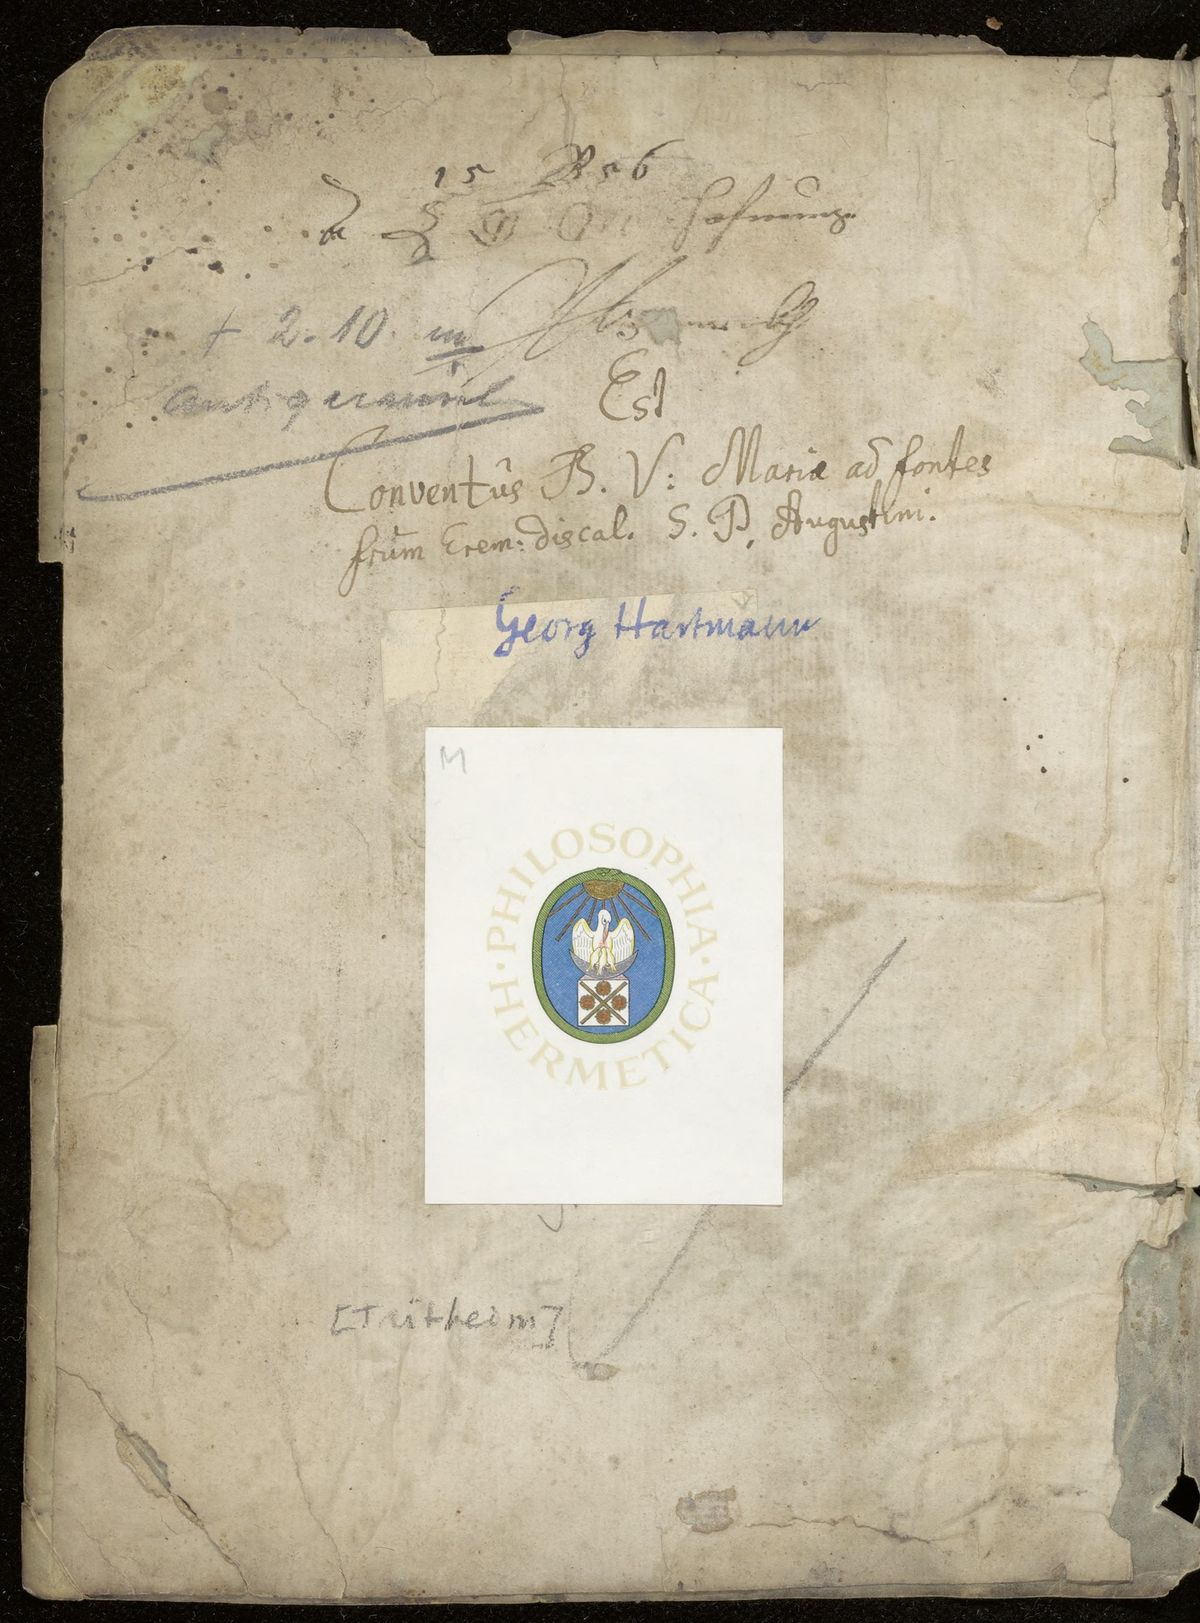 15 R 56
hofnung
+ 2.10. m
Est
Conventûs B. V: Mariæ ad fontes
frum Erem: discal. S. P. Augustini.
Georg Hartmann
M
· PHILOSOPHIA · HERMETICA
[Tritheim]